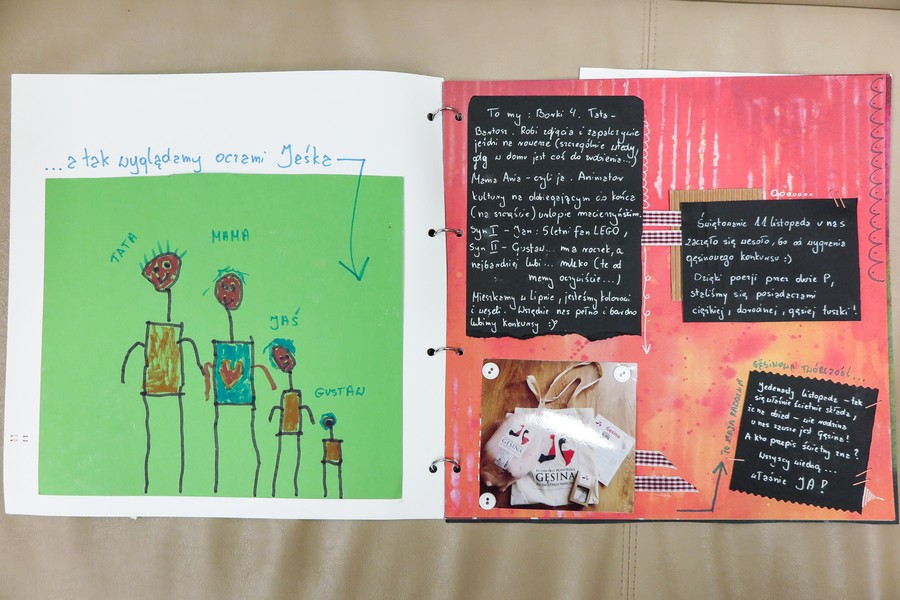 ...a tak wyglądamy oczami Jaśka
TATA
MAMA
JAŚ
GUSTAW
To my : Borki 4. Tata-
Bartosz. Robi zdjęcia i zapalczywie
jeździ na rowerze (szczególnie wtedy,
gdy w domu jest coś do zrobienia...)
Mama Ania - czyli ja. Animator
kultury na dobiegającym do końca
(na szczęście) urlopie macierzyńskim.
Syn I - Jan : 5 letni fan LEGO,
Syn II - Gustaw... ma roczek, a
najbardziej lubi... mleko (te od
memy oczywiście...)
Mieszkamy w Lipnie, jesteśmy kolorowi
i weseli. Wszędzie nas pełno i bardzo
lubimy konkursy :)
Świętowanie 11 listopada u nas
zaczęło się wesoło, bo od wygrania
gęsinowego konkursu :)
Dzięki poezji przez duże P,
staliśmy się posiadaczami
ciężkiej, dorodnej, gęsiej tuszki!
GĘSINOWA TWÓRCZOŚĆ...
Jedenasty listopada - tak
się właśnie świetnie składa,
że na obiad - wie rodzina
u nas zawsze jest Gęsina!
A kto przepis świetny zna?
Wszyscy wiedzą...
właśnie JA!
TO MOJA RADOSNA
GĘSINA
GĘSINA